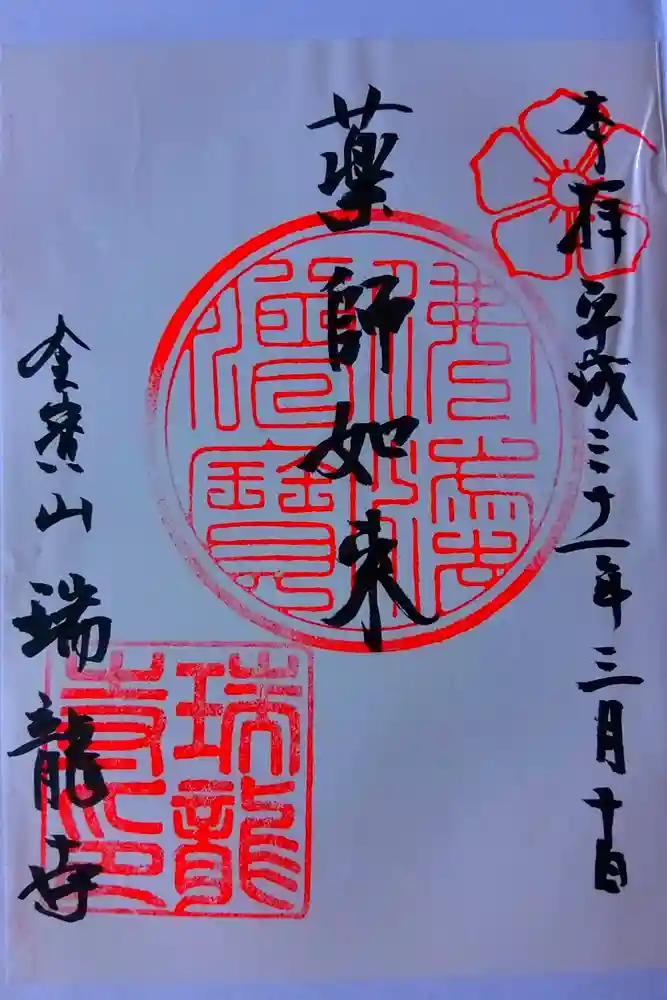 奉拝 平成三十一年三月十日
薬師如来
金寳山 瑞龍寺
瑞龍
寺印